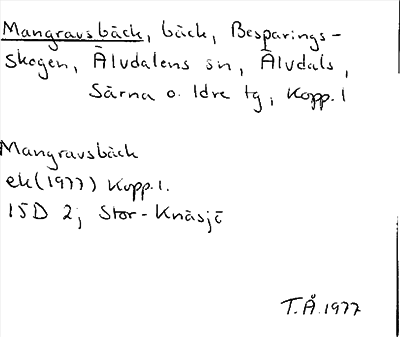 Mangravsbäck, bäck, Besparings-
skogen, Älvdalens sn, Älvdals,
Särna o. Idre tg, Kopp. l
Mangravsbäck
ek (1977) Kopp. l.
15D 2j Stor-Knäsjö
T.Å. 1977